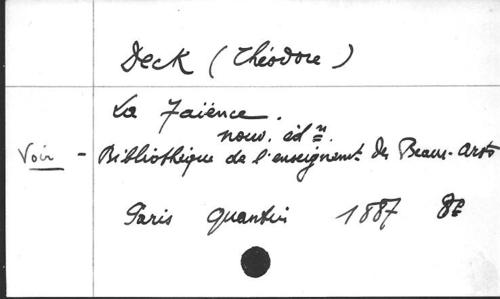 Deck (Théodore)
La Faïence.
nouv. éd n.
Voir - Bibliothèque de l'enseignemt. des Beaux-Arts
Paris Quantin 1887 8º